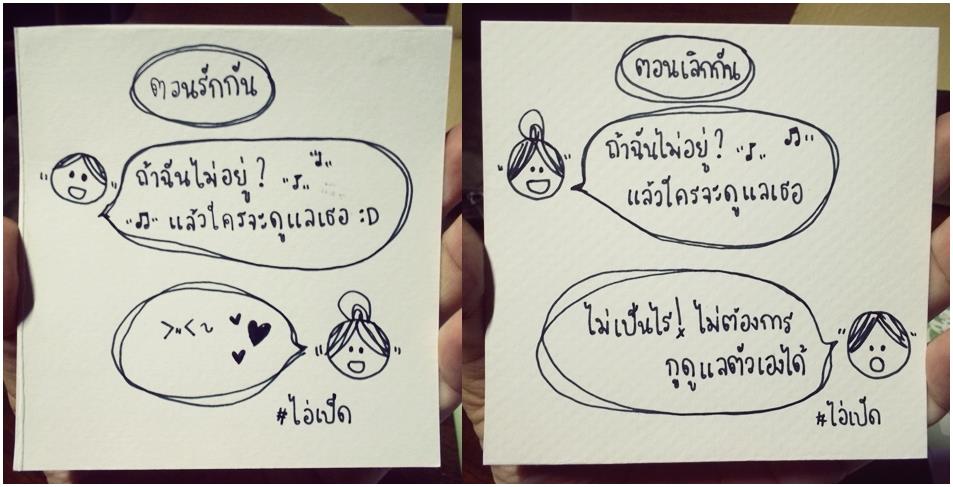 ตอนรักกัน
ถ้าฉันไม่อยู่?
แล้วใครจะดูแลเธอ :D
>"<~
#ไอ่เป็ด
ตอนเลิกกัน
ถ้าฉันไม่อยู่?
แล้วใครจะดูแลเธอ
ไม่เป็นไร! ไม่ต้องการ
กูดูแลตัวเองได้
#ไอ่เป็ด